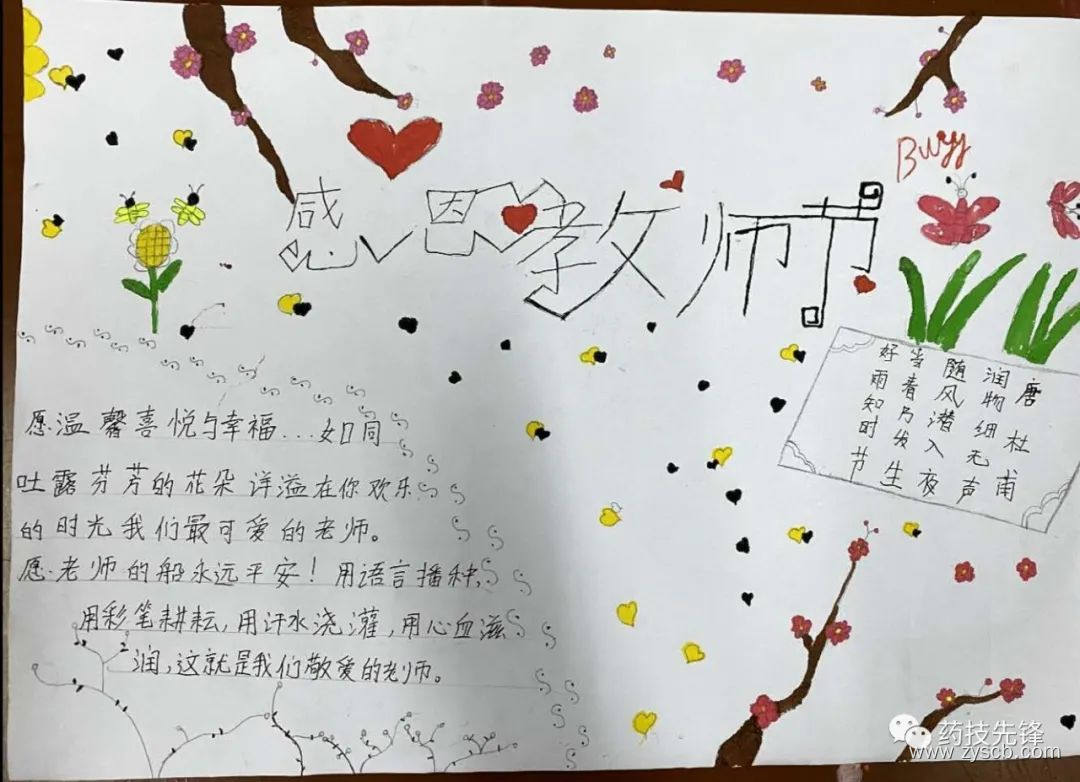 感恩教师节
好雨知时节
当春乃发生
随风潜入夜
润物细无声
唐 杜甫
愿温馨喜悦与幸福…如同
吐露芬芳的花朵洋溢在你欢乐
的时光我们最可爱的老师。
愿老师的船永远平安！用语言播种，
用彩笔耕耘，用汗水浇灌，用心血滋
润，这就是我们敬爱的老师。
药技先锋
www.zyscb.com